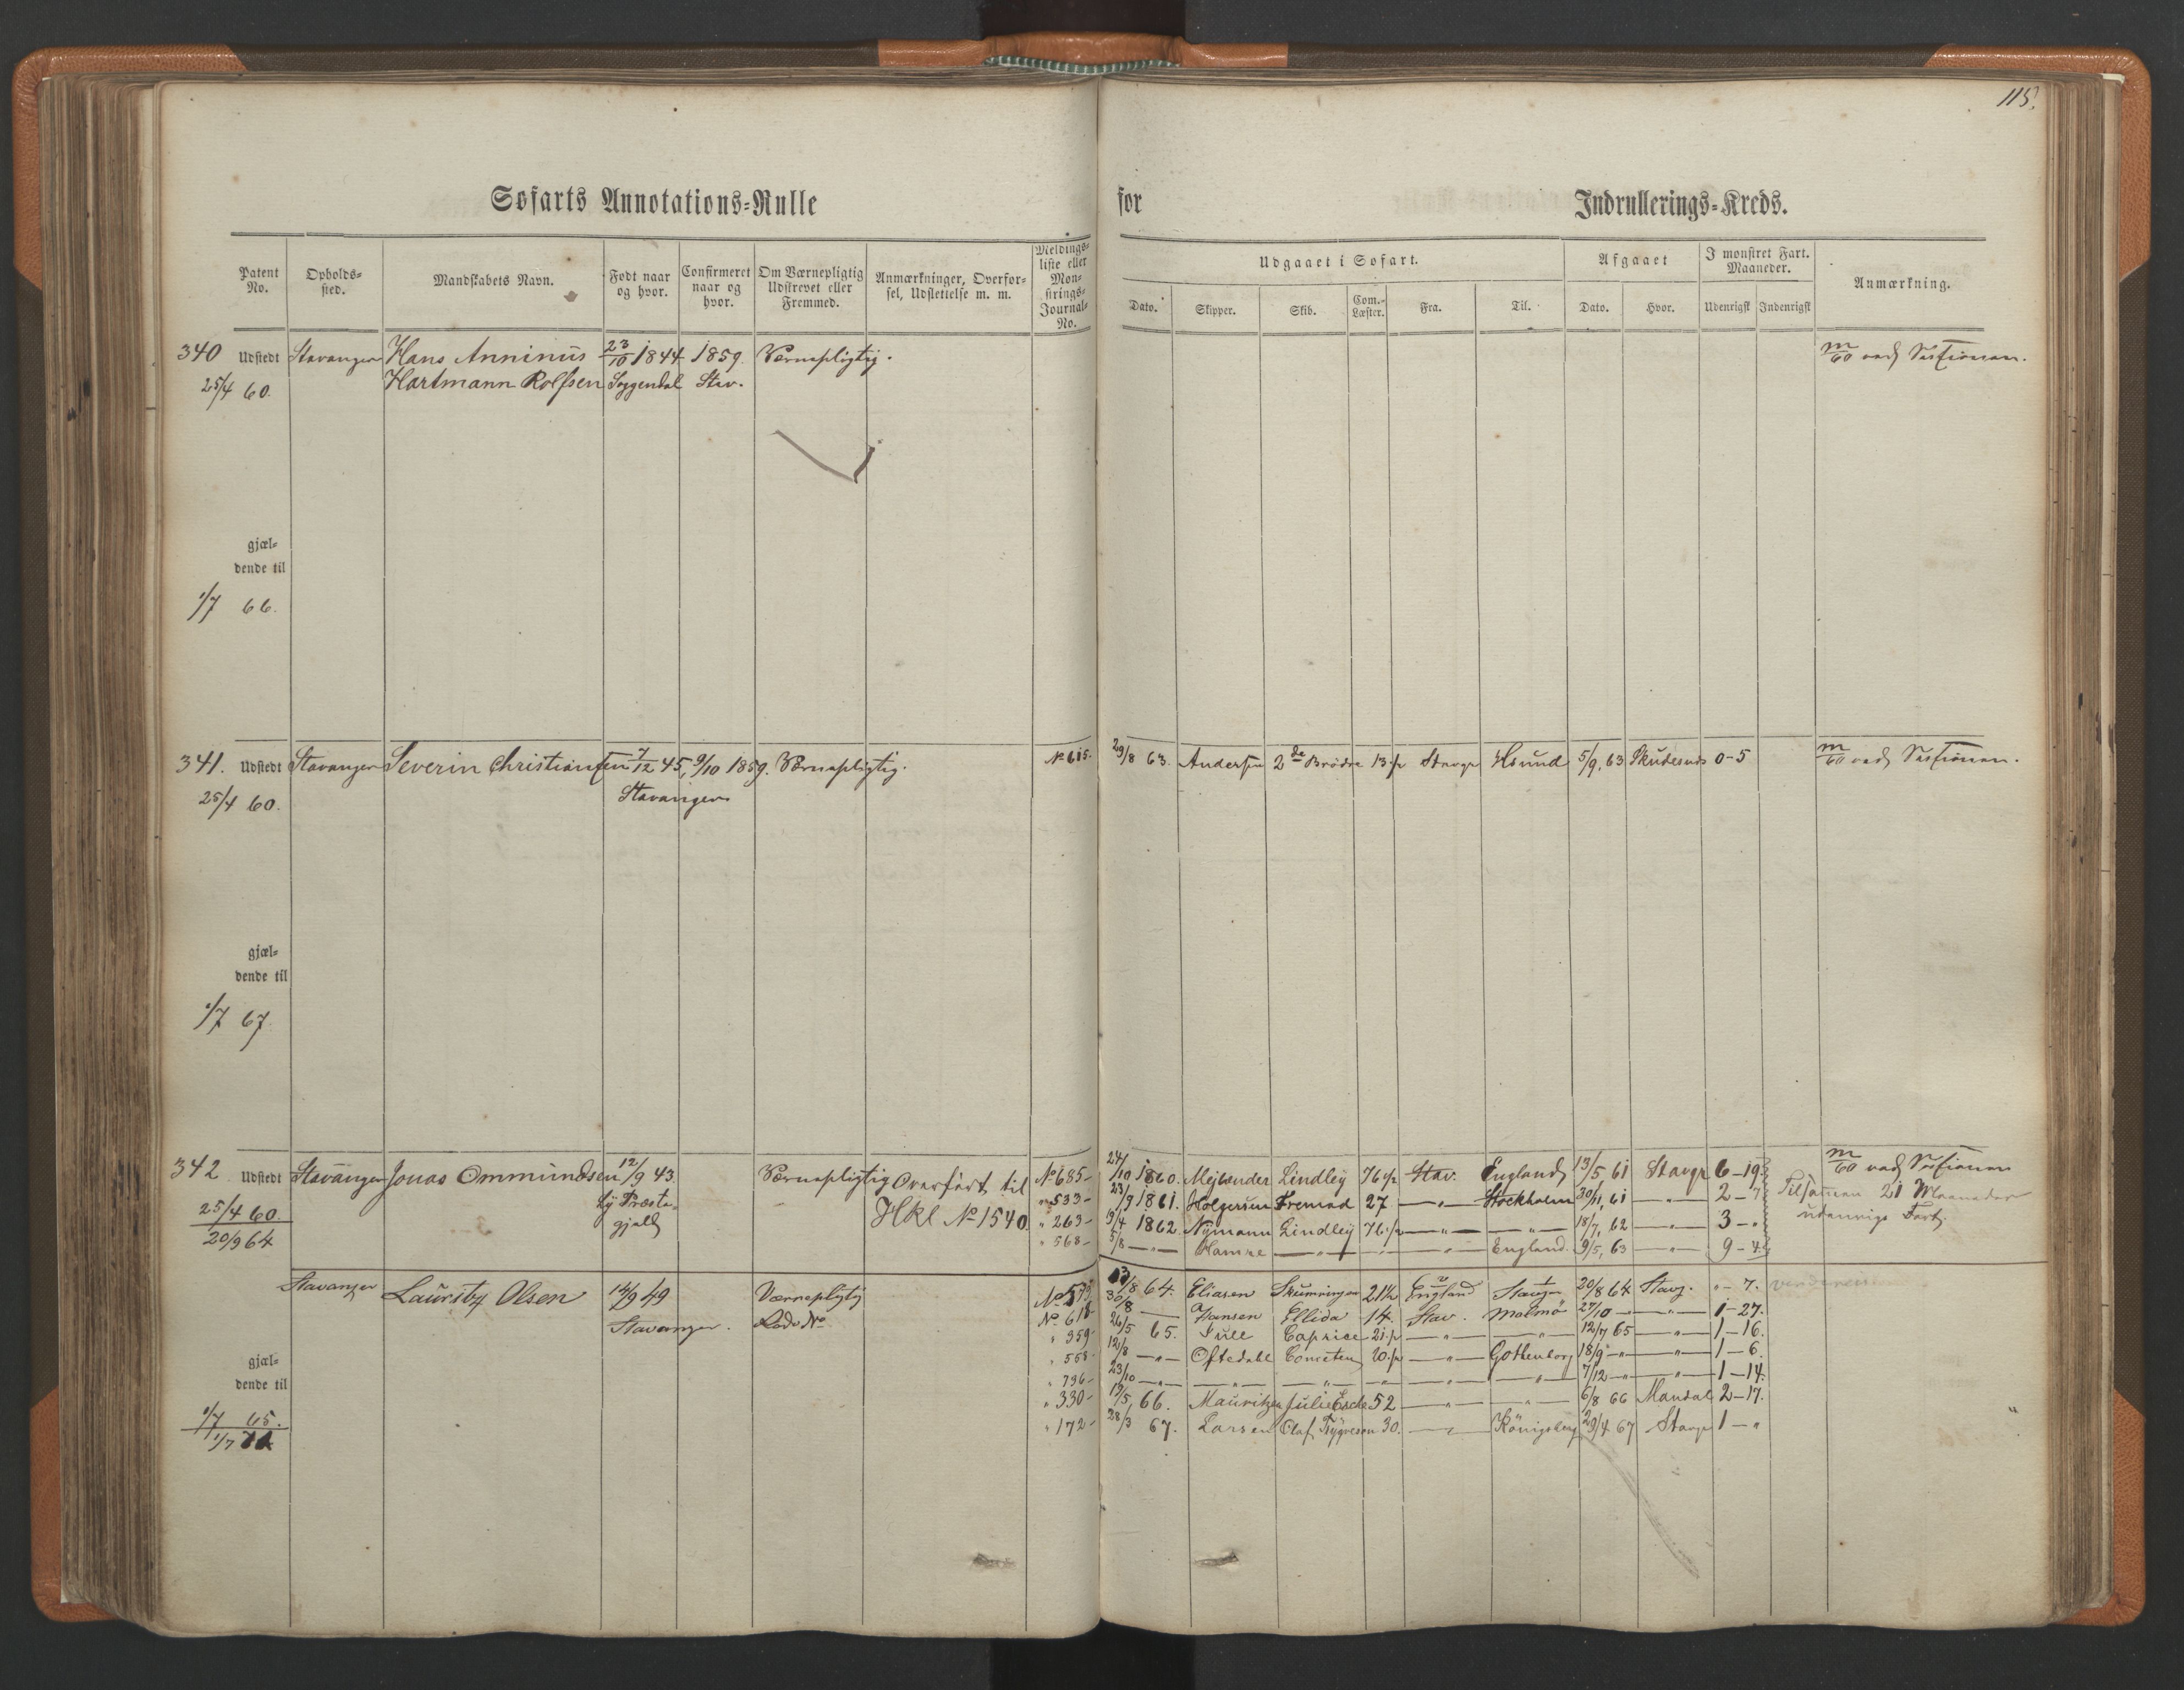 115.
Søfarts Annotations-Rulle for Indrullerings-Kreds.
Patent No. Opholds-sted. Mandskabets Navn. Født naar og hvor. Confirmeret naar og hvor. Om Værnepligtig Udskrevet eller Fremmed. Anmærkninger, Overførsel, Udslettelse m. m. Meldings-liste eller Mønstrings-Journal-No.
Udgaaet i Søfart. Afgaaet I mønstret Fart. Maaneder. Anmærkning.
Dato. Skipper. Skib. Com.-Læster. Fra. Til. Dato. Hvor. Udenrigsk Indenrigsk
340 Udstedt Stavanger Hans Anninius 23/10 1844 1859. Værnepligtig.
25/4 60. Hartmann Rolfsen Soggendal Stav.
gjæl-
dende til
1/7 66.
341. Udstedt Stavanger Severin Christiansen 7/12 45, 9/10 1859. Værnepligtig. No 615. 29/8 63. Andersen 2de Brødre 13 1/2 Stavgr 5/9, 63 Skudesnes 0-5
25/4 60. Stavanger
gjæl-
dende til
1/7 67.
342 Udstedt Stavanger Jonas Ommundsen 12/9 43. Værnepligtig Overført til No 685- 24/10 1860. Mejlænder Lindley 76 1/2 Stav. England 13/5 61 Stavgr 6-19
25/4 60. Ly Præste- Hkl No 1540 " 533- 23/9 1861. Holgersen Fremad 27 -"- Stockholm 30/11, 61 -"- 2-7 Tilsammen 21 Maaneder
20/9 64 gjeld " 263- 19/4 1862. Nymann Lindley 76 1/2 -"- -"- 18/7, 62 -"- 3-" udenrigs Fart.
" 568- 5/8 -"- Hamre -"- -"- -"- England. 9/5, 63 -"- 9-4
Stavanger Lauritz Olsen 14/9 49 Værnepligtig 64. Eliasen 21 1/2 England Stavgr 20/8 64 Stavg. "-7.
Stavanger. Lods No No 618 30/8 -"- Hansen Ellida 14. Stav. Malmö 27/10 -"- -"- 1-27.
" 359- 26/5 65. Caprice 21 1/2 -"- -"- 12/7 65 -"- 1-16.
gjæl- " 558- 12/8 -"- Oftedahl Cometen 20 1/2 -"- Gothenborg 18/9 -"- -"- 1-6.
dende til " 796- 23/10 -"- -"- -"- -"- -"- -"- 7/12 -"- -"- 1-14.
1/7 65. " 330- 19/5, 66. Mauritzen Julie Esche 52 -"- -"- 6/8 66 Mandal 2-17.
1/7 71 " 172- 28/3 67. Larsen Olaf Trygvesen 30. -"- Königsberg 29/4 67 Stavgr 1-"